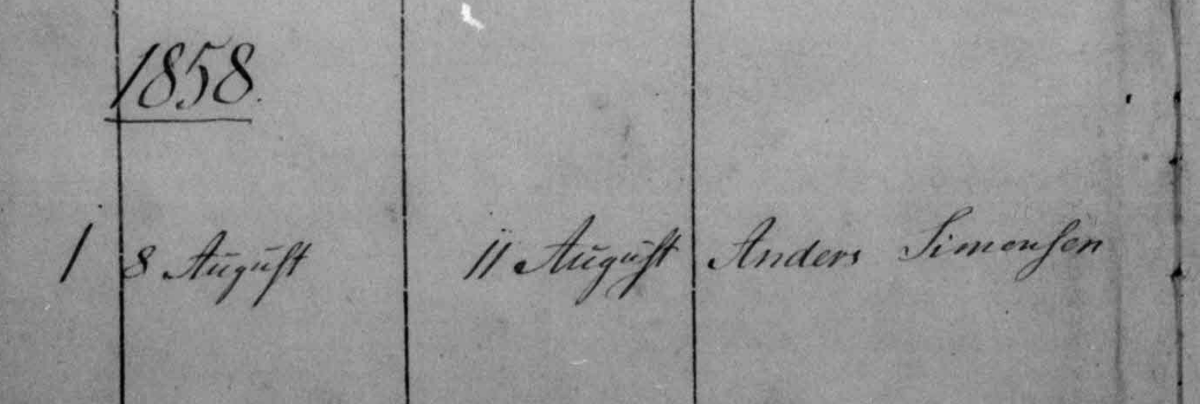 1858.
1 8 August 11 August Anders Simonsen